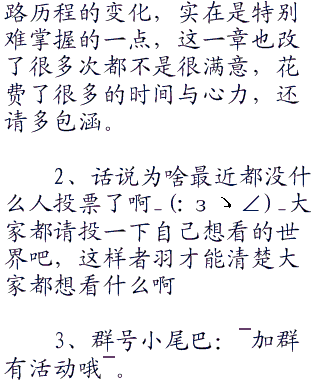 路历程的变化，实在是特别
难掌握的一点，这一章也改
了很多次都不是很满意，花
费了很多的时间与心力，还
请多包涵。
2、话说为啥最近都没什
么人投票了啊_(:з ヽ∠)_大
家都请投一下自己想看的世
界吧，这样者羽才能清楚大
家都想看什么啊
3、群号小尾巴：¯加群
有活动哦¯。